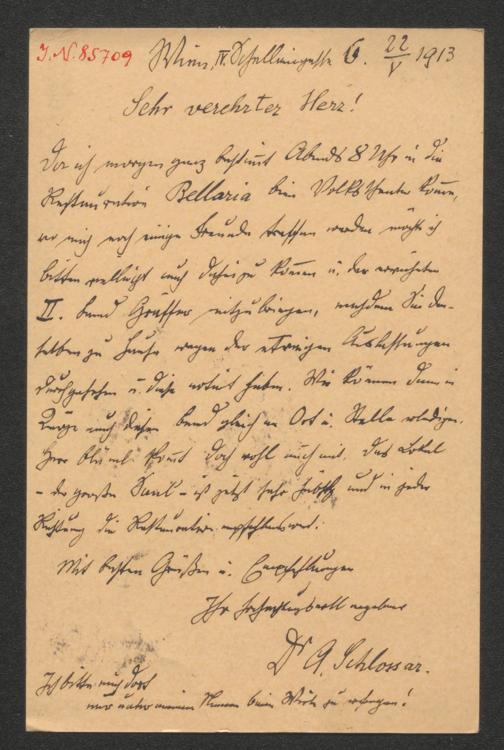 J.N. 85709
Wien, IV. Schelleingasse 6. 22/V 1913
Sehr verehrter Herr!
Da ich morgen ganz bestimmt Abends 8 Uhr in die
Restauration Bellaria beim Volkstheater komme,
wo mich noch einige Freunde treffen werden möchte ich
bitten vielleicht auch dahin zu kommen u. den erwähnten
II. Band Gräffer mitzubringen, nachdem Sie den-
selben zu Hause wegen der etwaigen Auslassungen
durchgesehen u. diese notirt haben. Wir können dann in
Kürze auch diesen Band gleich an Ort u. Stelle erledigen.
Herr Blüml kommt doch wohl auch mit. Das Lokal
– der große Saal – ist jetzt sehr hübsch und in jeder
Richtung die Restauration empfehlenswert.
Mit besten Grüßen u. Empfehlungen
Ihr hochachtungsvoll ergebener
Dr A. Schlossar.
Ich bitte auch dort
nur unter meinem Namen beim Wirte zu erfragen!